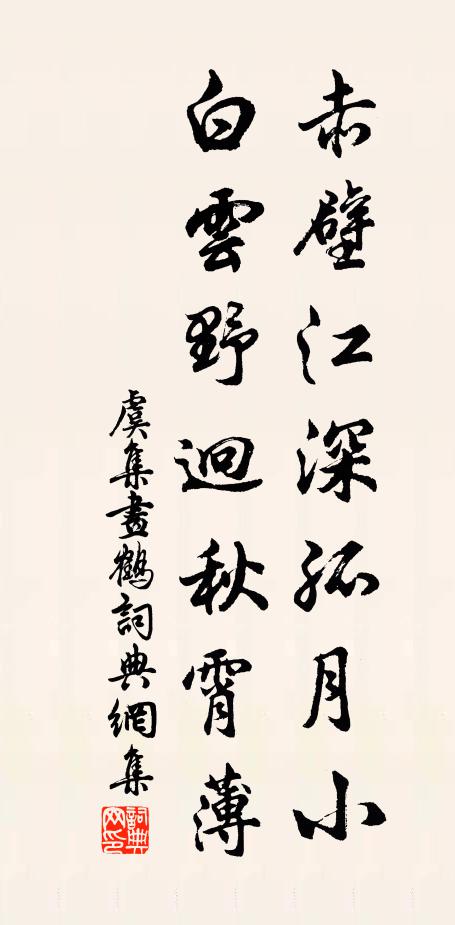 赤壁江深孤月小
白雲野迴秋霄薄
虞集畫鶴詞典網集
詞典网印